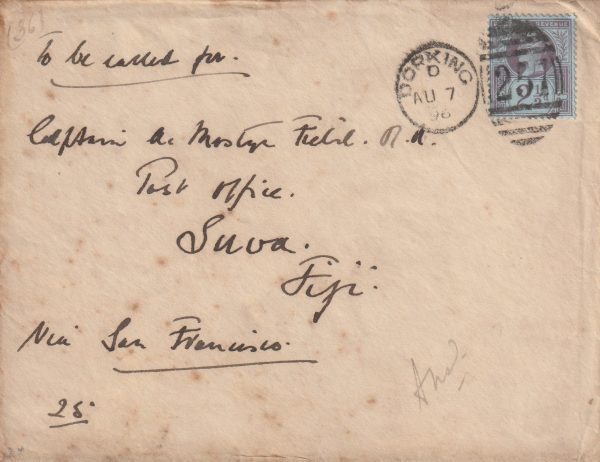 (36)
To be called for.
DORKING
D
AU 7
96
REVENUE
2½
Captain A. Mostyn Field. R.N.
Post Office.
Suva.
Fiji.
Via San Francisco.
Ansd.
25